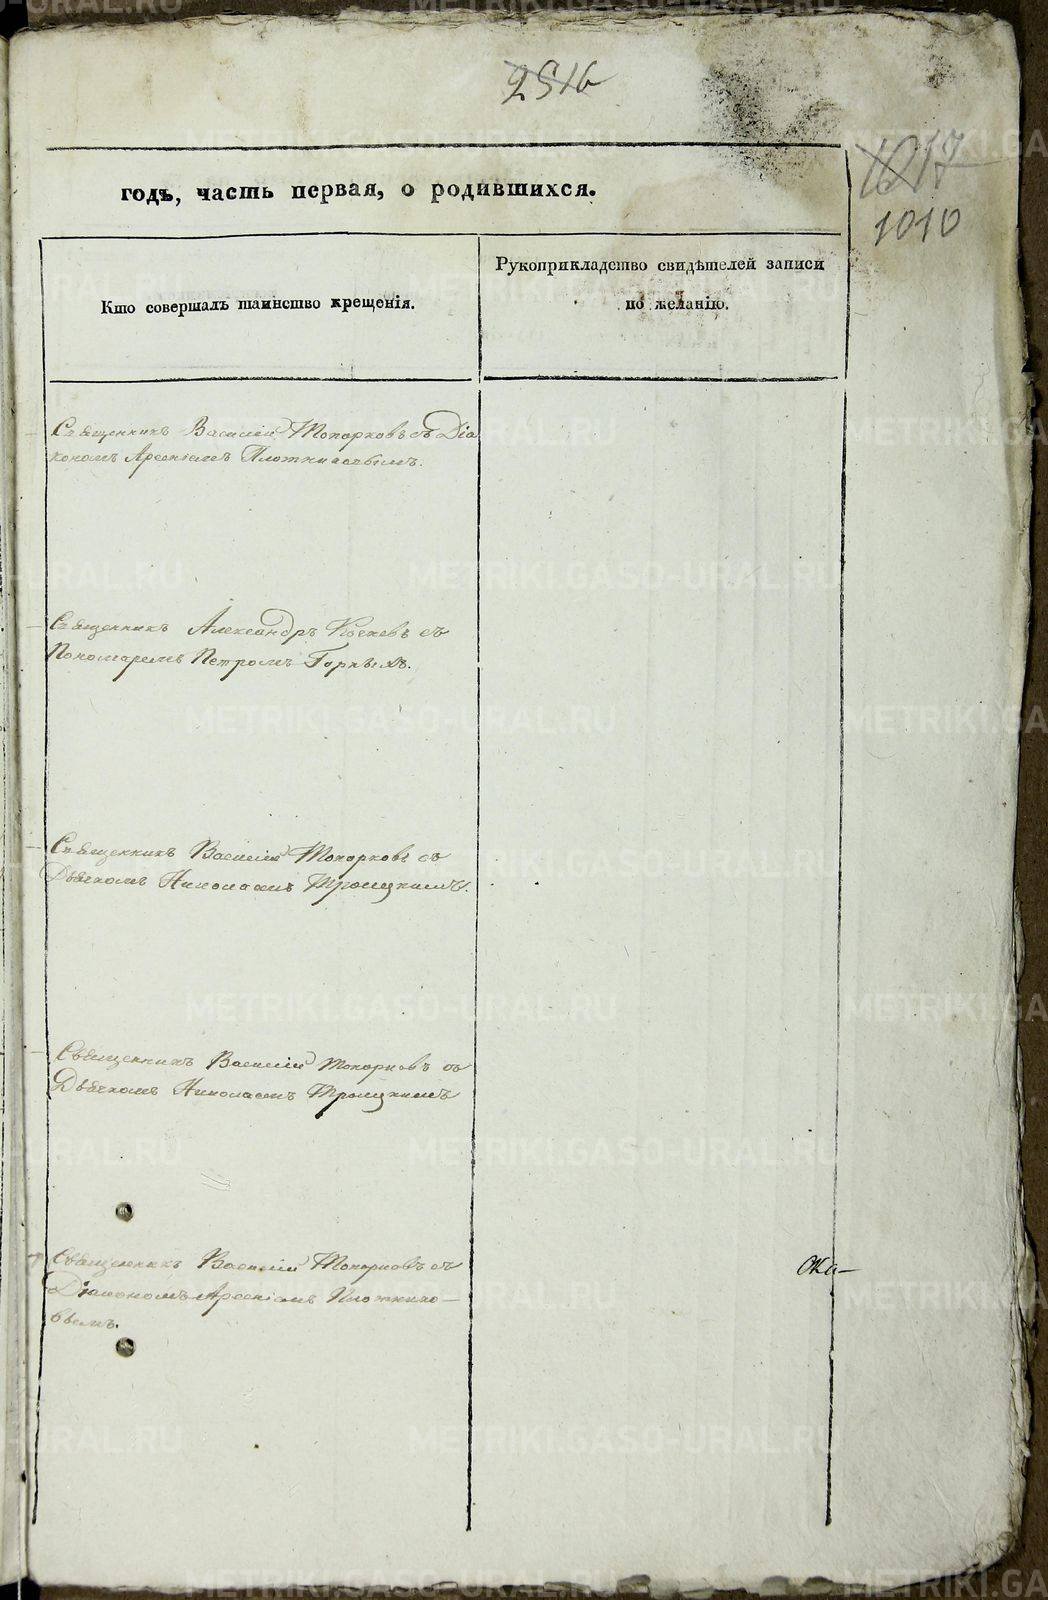 2516
1017
1010
годъ, часть первая, о родившихся.
Кто совершалъ таинство крещенія.
Рукоприкладство свидѣтелей записи
по желанію.
Священникъ Василій Топорковъ съ Діа
кономъ Арсеніемъ Плотниковымъ.
Священникъ Александръ съ
Пономаремъ Петромъ Горныхъ.
Священникъ Василій Топорковъ съ
Дьячкомъ Николаемъ Троицкимъ.
Священникъ Василій Топорковъ съ
Дьячкомъ Николаемъ Троицкимъ
Священникъ Василій Топорковъ съ
Діакономъ Арсеніемъ Плотнико-
вымъ.
METRIKI.GASO-URAL.RU